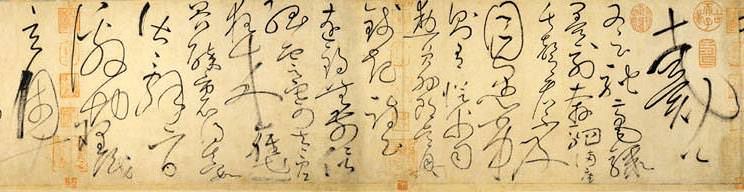 戴公
又云馳毫驟
墨列奔駟滿座
失聲看不及
目愚劣
則有從父司
勳員外郎吳興
錢起詩云
遠錫無前侶
孤雲寄太虛
狂來輕世
界醉裏得真如
皆辭旨
激切理識
玄奧固